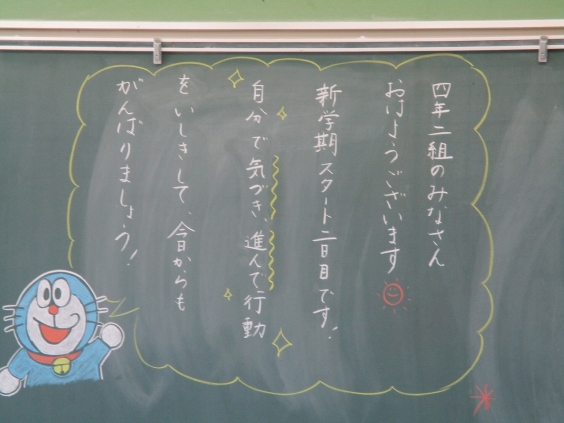 四年二組のみなさん
おはようございます
新学期スタート二日目です!
自分で気づき、進んで行動
をいしきして、今日からも
がんばりましょう!